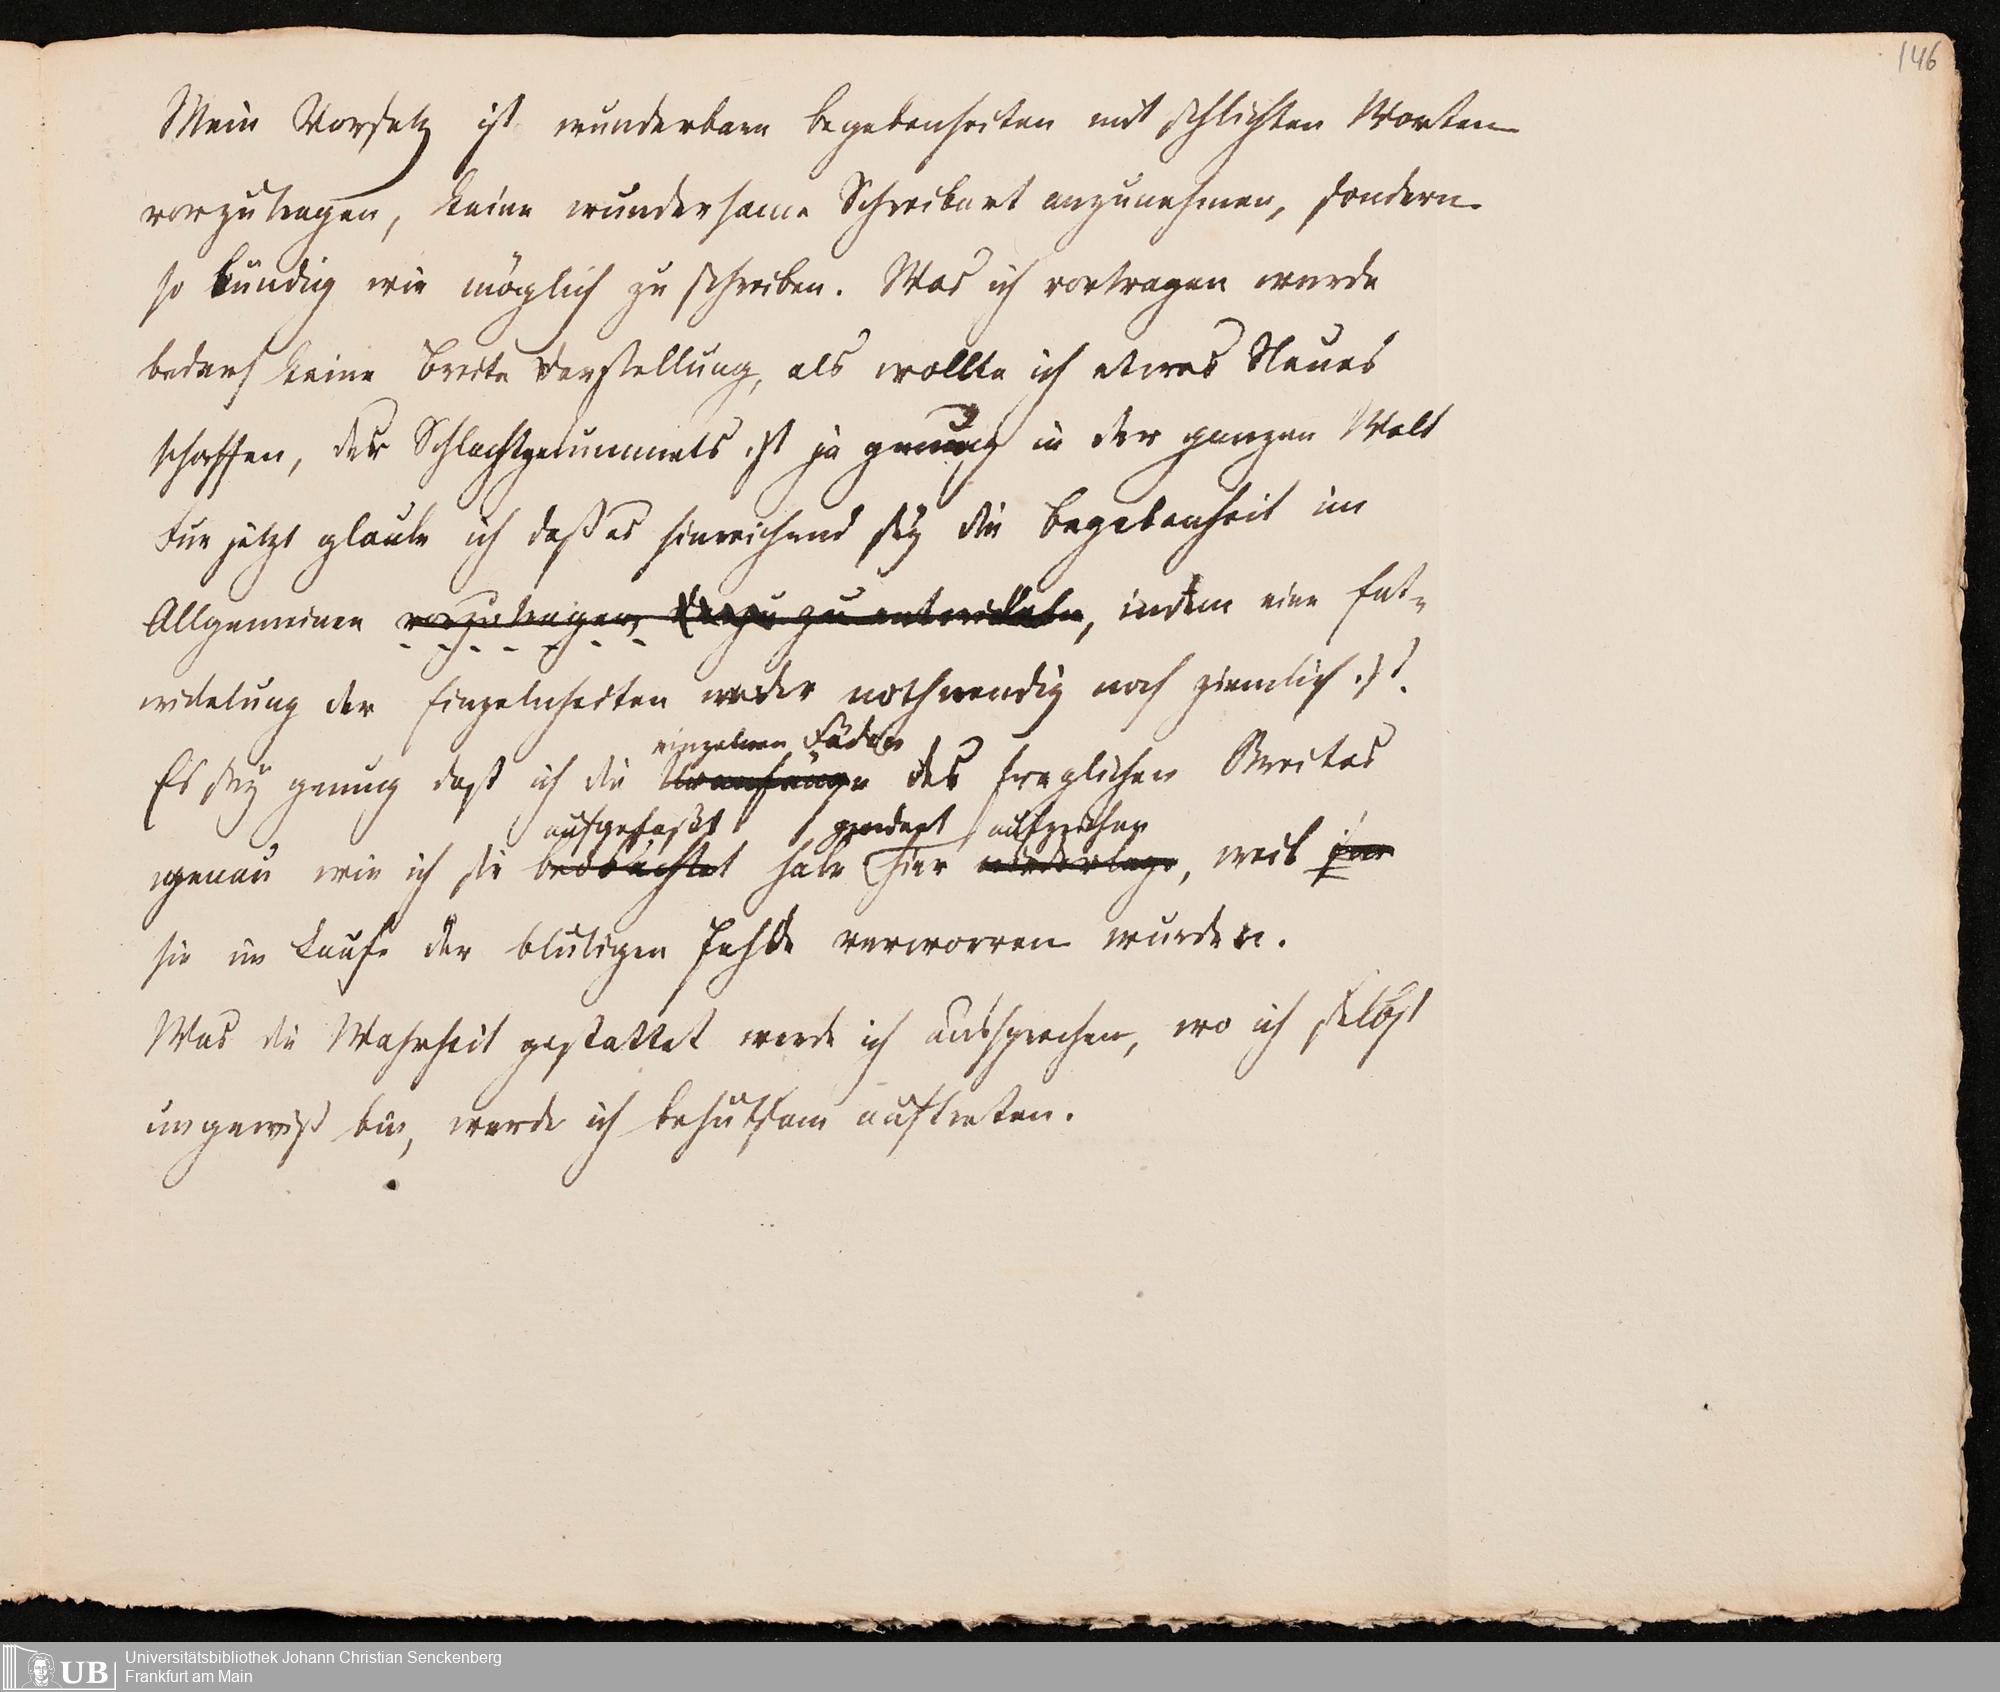 146
Mein Vorsatz ist wunderbare Begebenheiten mit schlichten Worten
vorzutragen, keine wundersame Schreibart anzunehmen, sondern
so bündig wie möglich zu schreiben. Was ich vortragen werde
bedarf keine breite Darstellung, als wollte ich etwas Neues
schaffen, des Schlachtgetümmels ist ja genug in der ganzen Welt
Für jetzt glaube ich daß es hinreichend sey die Begebenheit im
Allgemeinen vorzutragen, zu entwickeln, indem eine Ent-
wickelung der Einzelnheiten weder nothwendig noch ziemlich ist.
einzelnen Fäden
Es sey genug daß ich die des fraglichen Streites
aufgefaßt aufzeichne
genau wie ich sie beobachtet habe hier niederlege, weil
sie im Laufe der blutigen Fehde verworren wurden.
Was die Wahrheit gestattet werde ich aussprechen, wo ich selbst
ungewiß bin, werde ich behutsam auftreten.
UB
Universitätsbibliothek Johann Christian Senckenberg
Frankfurt am Main